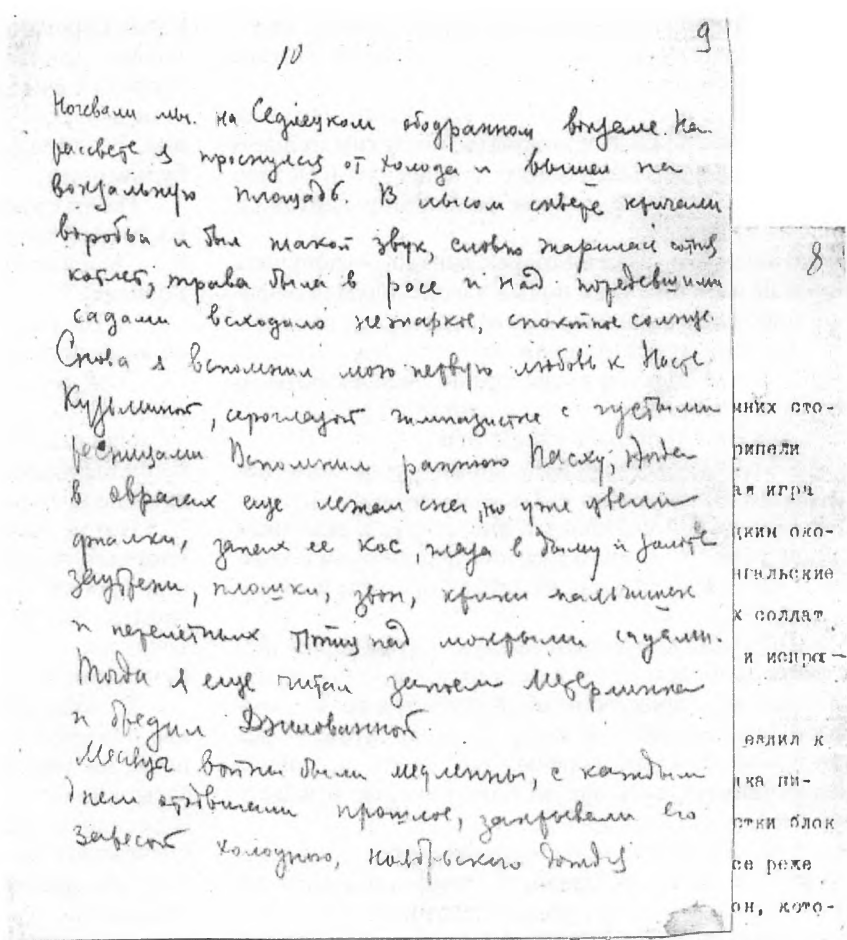 10
9
Ночевали мы на Седлецком ободранном вокзале. На
рассвете я проснулся от холода и вышел на
вокзальную площадь. В лысом сквере кричали
воробьи и был такой звук, словно жарили сотню
котлет; трава была в росе и над поредевшими
садами всходило нежаркое, спокойное солнце.
Снова я вспомнил мою первую любовь к Насте
Кузьминой, сероглазой гимназистке с густыми
ресницами. Вспомнил раннюю Пасху, когда
в оврагах еще лежал снег, но уже цвели
фиалки, запах ее кос, глаза в дыму и золоте
заутрени, плошки, звон, крики мальчишек
и перелетных птиц над мокрыми садами.
Тогда я еще читал запоем Метерлинка
и бредил Джиованной
Месяцы войны были медленны, с каждым
днем отодвигали прошлое, закрывали его
завесой холодного, ноябрьского дождя
8
нних сто-
рипели
ая игра
цким око-
нгальские
х солдат
и испра-
валил к
лка пи-
стки блок
се реже
он, кото-